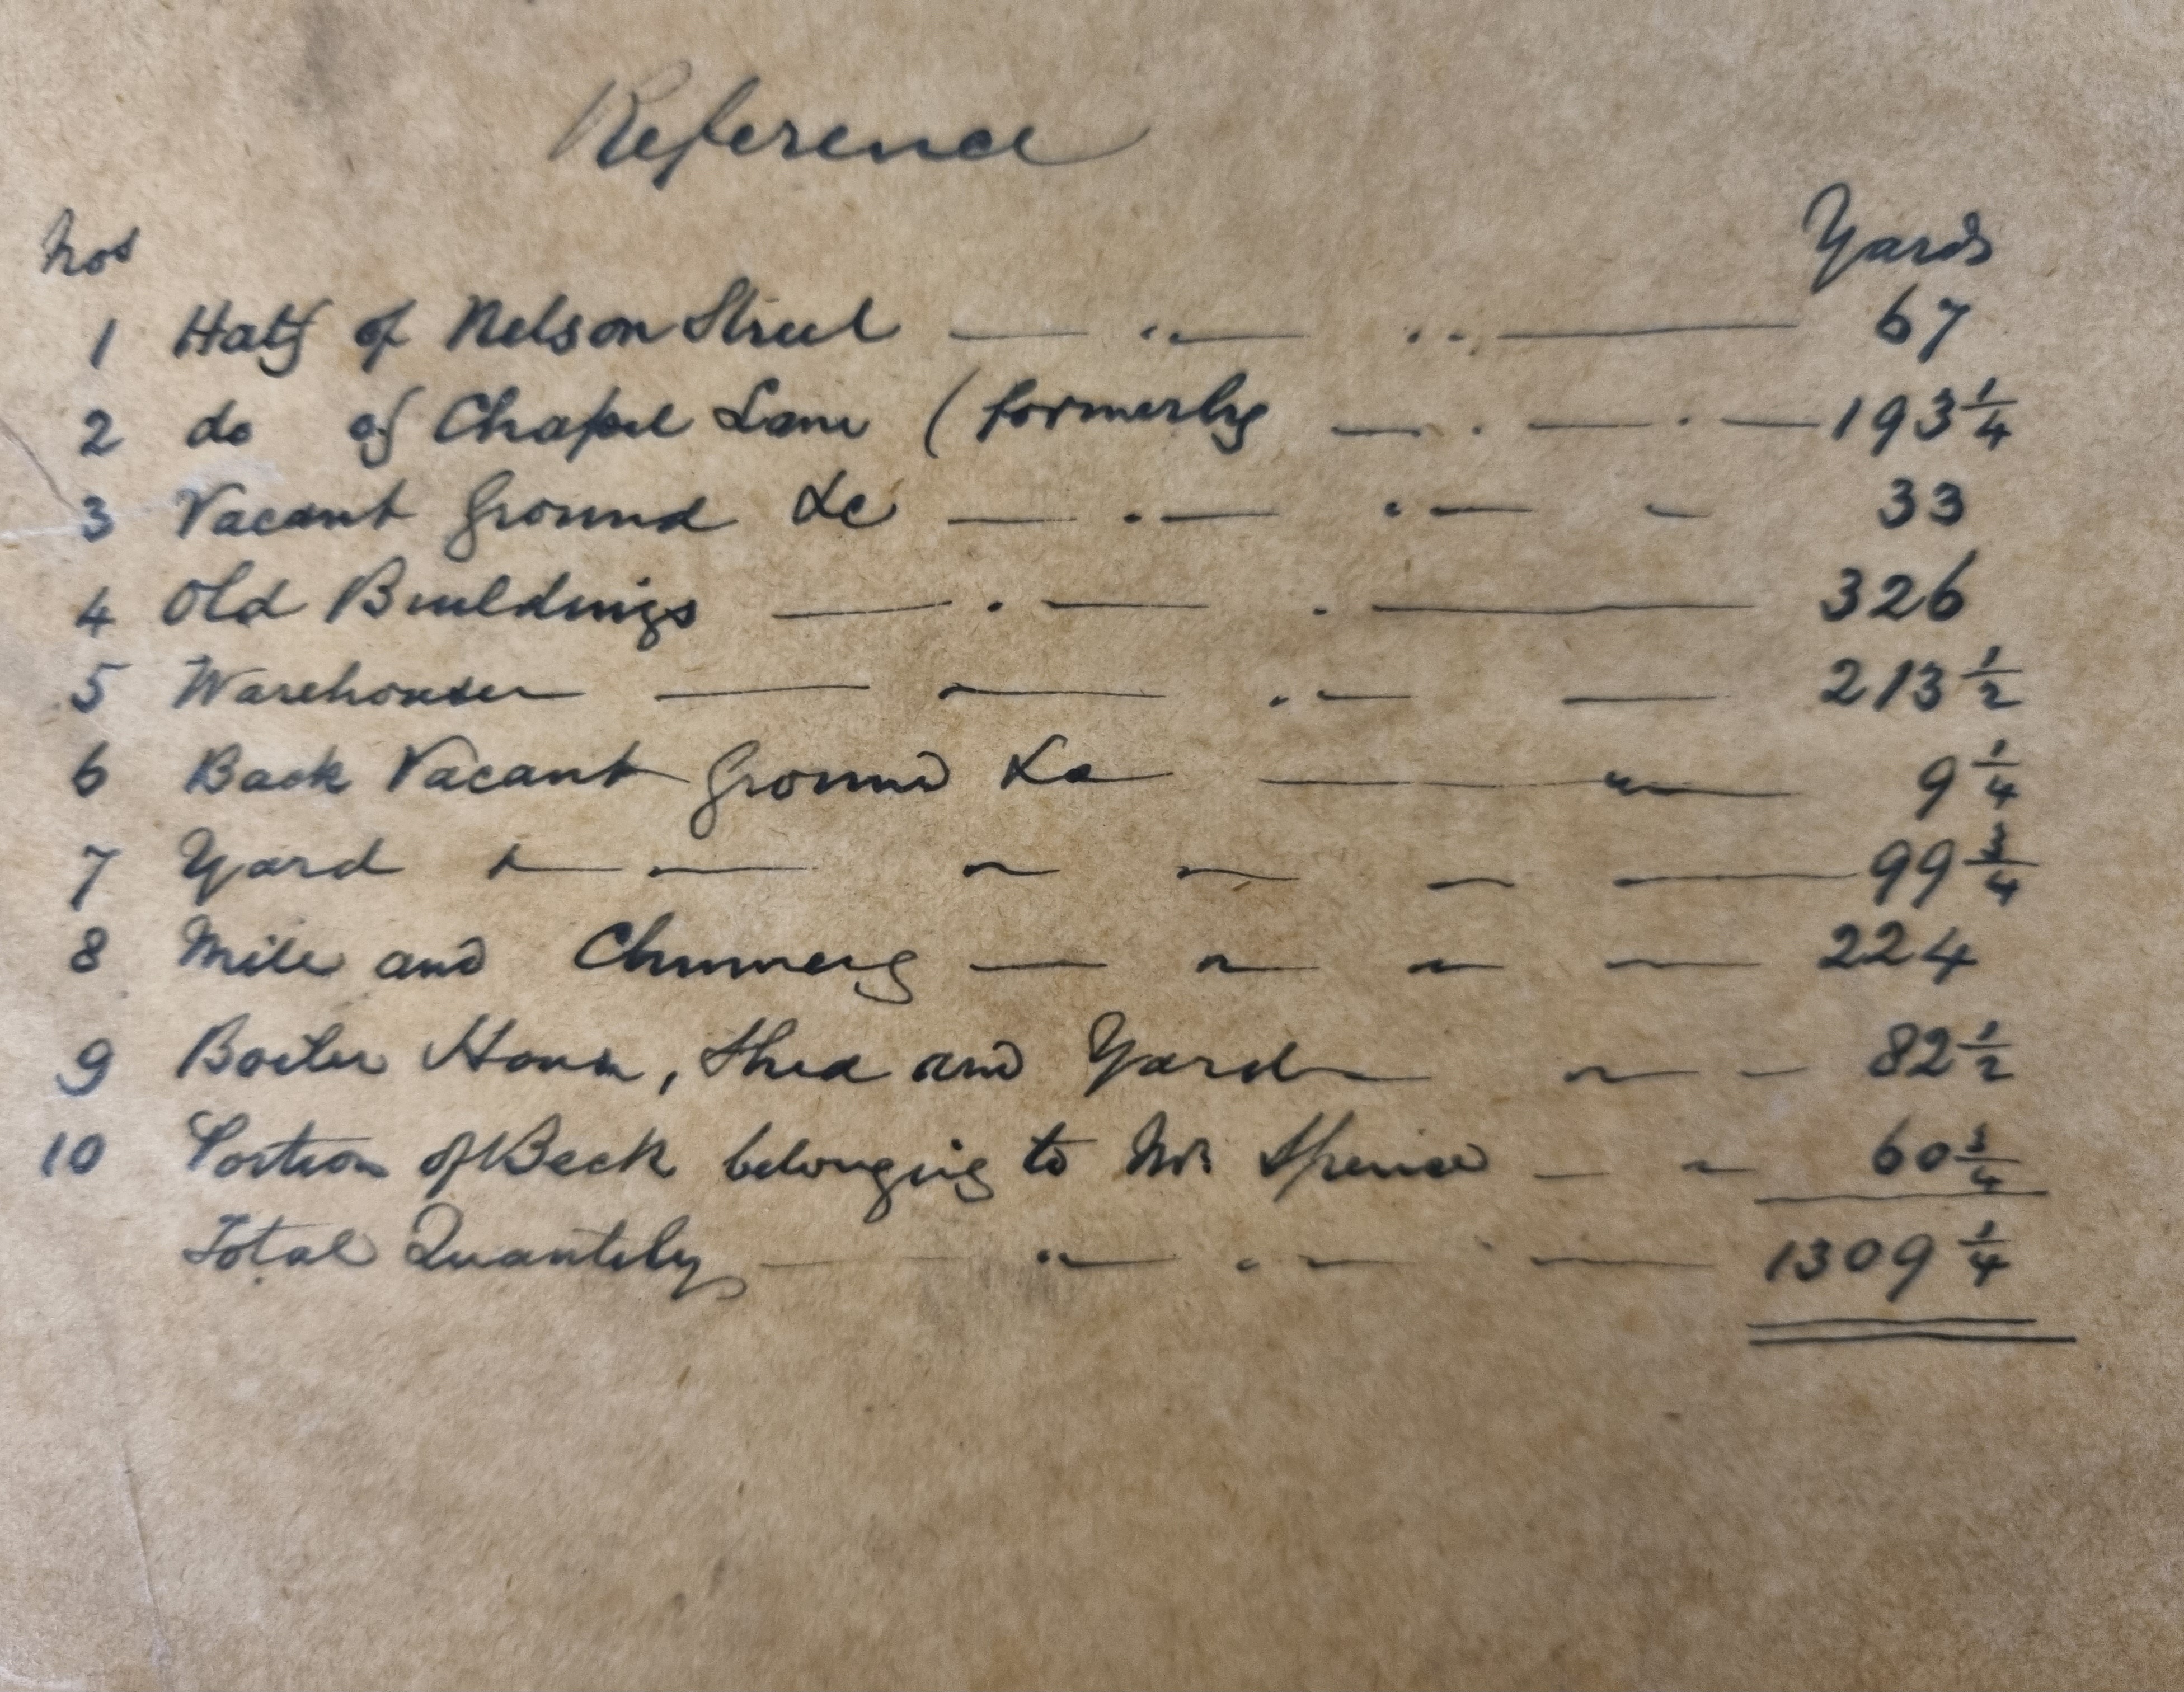 Reference
Nos Yards
1 Half of Nelson Street 67
2 do of Chapel Lane (formerly 193 1/4
3 Vacant Ground &c 33
4 Old Buildings 326
5 Warehouses 213 1/2
6 Back Vacant Ground &c 9 1/4
7 Yard 99 3/4
8 Mill and Chimney 224
9 Boiler House, Shed and Yard 82 1/2
10 Portion of Beck belonging to Mr. Spence 60 3/4
Total Quantity 1309 1/4